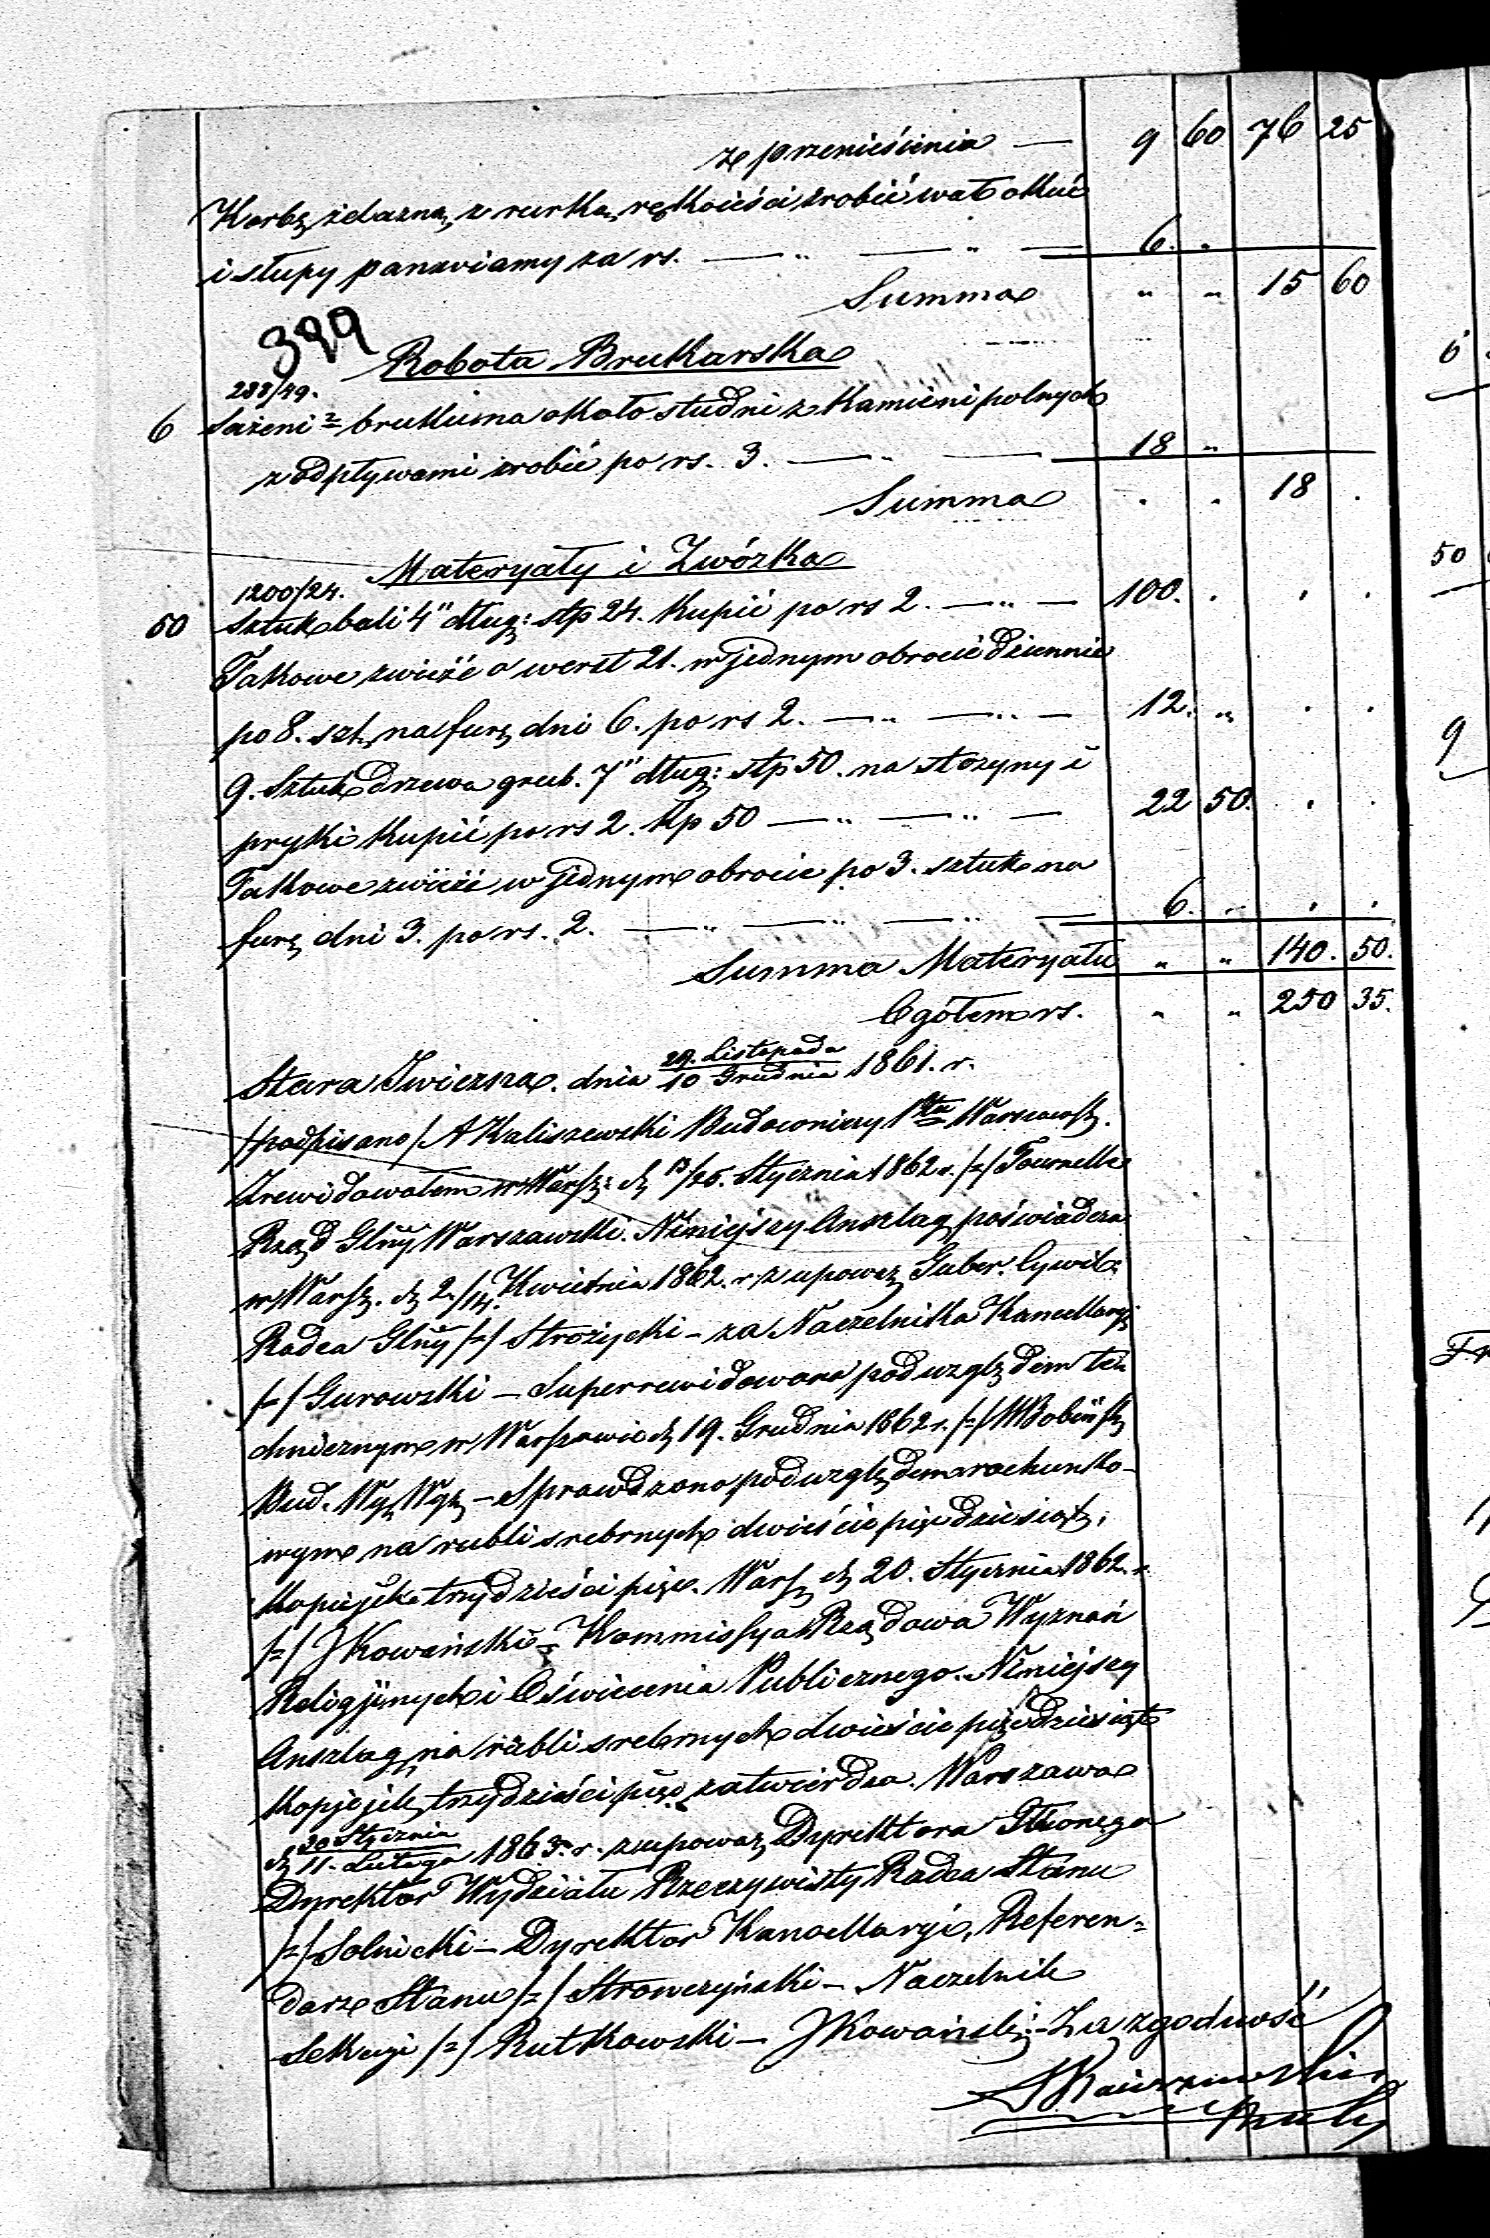 ze przenieśienia — 9 60 76 25
Korbę żelazną z rurką, rękoieści zrobić wał okuć
i stupy panwiamy za rs. — „ — „ — 6. „
Summa „ „ 15 60
399
Robota Brukarska
288/49.
6 Sażeni 2 brukuma około studni z kamieni polnych
z odpływami zrobić po rs. 3. — „ — 18 „
Summa „ „ 18 .
Materyały i Zwózka
1200/24.
50 Sztuk bali 4" dług: stp 24. kupić po rs 2. — „ — 100. . . .
Takowe zwieźć o werst 21. w jednym obrocie dziennie
po 8. szt. na furę dni 6. po rs 2. — „ — „ — 12. „ . .
9. Sztuk drzewa grub. 7" dług: stp 50. na stozyny i
pryki kupić po rs 2. kp 50 — „ — „ — 22 50. . .
Takowe zwieźć w jednym obrocie po 3. sztuk na
furę dni 3. po rs. 2. — „ — „ — „ — 6. „ . .
Summa Materyału „ „ 140. 50.
Ogółem rs. „ „ 250 35.
Stara Iwiczna. dnia 29. Listopada / 10 Grudnia 1861. r.
/podpisano/ A Kaliszewski Budowniczy Ptu Warszawsk.
Zrewidowałem w Warsz: d. 13/25. Stycznia 1862 r. /=/ Tournelle
Rząd Glny Warszawski. Niniejszy Anszlag poświadcza
w Warsz. d. 2./14. Kwietnia 1862. r z upoważ Guber. Cywil:
Radca Glny /=/ Strożycki – za Naczelnika Kancellaryi
/=/ Gurowski – Superrewidowano pod względem te-
chnicznym w Warszawie d. 19. Grudnia 1862 r. /=/ W Bobińsk
Bud. – Sprawdzono pod względem rachunko-
wym na rubli srebrnych dwieście pięćdziesiąt,
kopiejek trzydzieści pięć. Warsz d. 20. Stycznia 1862. r.
/=/ J Kowański – Kommissya Rządowa Wyznań
Religijnych i Oświecenia Publicznego. Niniejszy
Anszlag na rubli srebrnych dwieście pięćdziesiąt
kopiejek trzydzieści pięć zatwierdza. Warszawa
d. 30 Stycznia / 11. Lutego 1863. r. z upoważ. Dyrektora Głownego
Dyrektor Wydziału Rzeczywisty Radca Stanu
/=/ Solnicki – Dyrektor Kancellaryi, Referen-
darz Stanu /=/ Stronczyński – Naczelnik
Sekcyi /=/ Rutkowski – J Kowański – Za zgodność